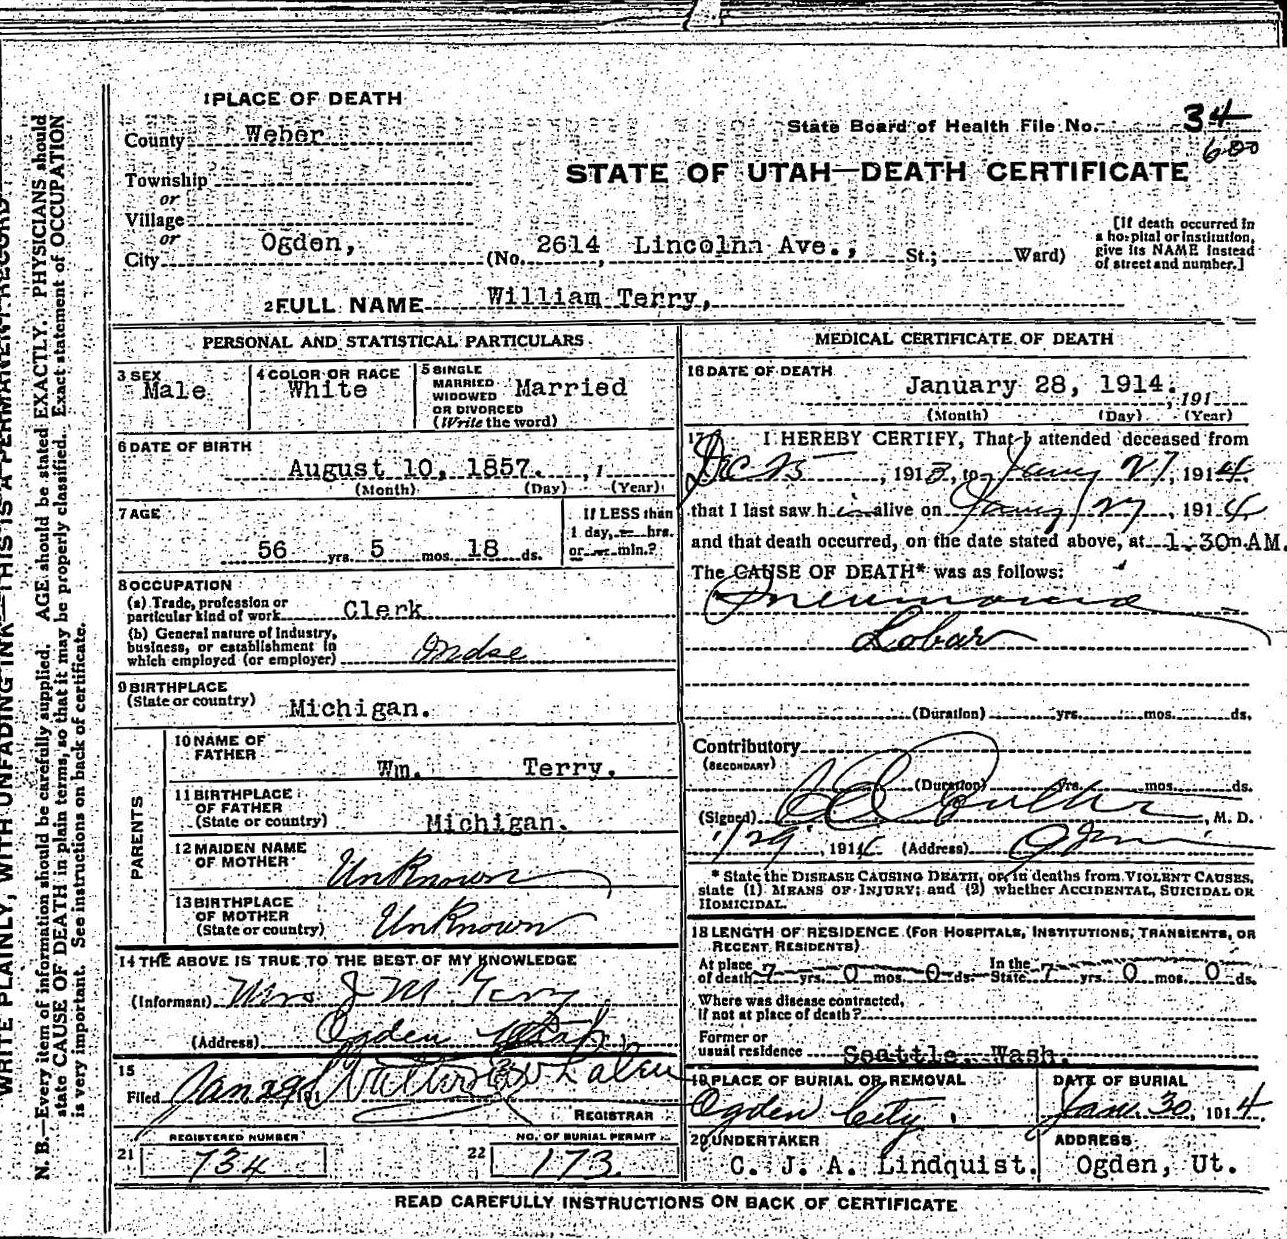 1 PLACE OF DEATH
County Weber
State Board of Health File No. 34
600
STATE OF UTAH—DEATH CERTIFICATE
Township
or
Village
or
City Ogden, (No. 2614 Lincolnn Ave., St.; Ward)
[If death occurred in
a hospital or institution,
give its NAME instead
of street and number.]
2 FULL NAME William Terry,
PERSONAL AND STATISTICAL PARTICULARS
3 SEX
Male
4 COLOR OR RACE
White
5 SINGLE
MARRIED
WIDOWED
OR DIVORCED
(Write the word)
Married
6 DATE OF BIRTH
August 10, 1857. , 1
(Month) (Day) (Year)
7 AGE
56 yrs. 5 mos. 18 ds.
If LESS than
1 day, hrs.
or min.?
8 OCCUPATION
(a) Trade, profession or
particular kind of work Clerk
(b) General nature of industry,
business, or establishment in
which employed (or employer) Mdse
9 BIRTHPLACE
(State or country) Michigan.
PARENTS
10 NAME OF
FATHER
Wm. Terry.
11 BIRTHPLACE
OF FATHER
(State or country) Michigan.
12 MAIDEN NAME
OF MOTHER
Unknown
13 BIRTHPLACE
OF MOTHER
(State or country) Unknown
14 THE ABOVE IS TRUE TO THE BEST OF MY KNOWLEDGE
(Informant) Mrs J M Terry
(Address) Ogden Utah.
15
Filed Jan 29 191 Walter Whalen
REGISTRAR
REGISTERED NUMBER
21 734
NO. OF BURIAL PERMIT
22 173.
MEDICAL CERTIFICATE OF DEATH
16 DATE OF DEATH
January 28, 1914. , 191
(Month) (Day) (Year)
17 I HEREBY CERTIFY, That I attended deceased from
Dec 25 , 1913, to Jany 27, 1914,
that I last saw him alive on Jany 27, 1914
and that death occurred, on the date stated above, at 1.30m AM.
The CAUSE OF DEATH* was as follows:
Pneumonia
Lobar
(Duration) yrs. mos. ds.
Contributory
(SECONDARY)
(Duration) yrs. mos. ds.
(Signed) , M. D.
1/29 , 1914 (Address) Ogden
* State the DISEASE CAUSING DEATH, or, in deaths from VIOLENT CAUSES,
state (1) MEANS OF INJURY; and (2) whether ACCIDENTAL, SUICIDAL OR
HOMICIDAL.
18 LENGTH OF RESIDENCE (FOR HOSPITALS, INSTITUTIONS, TRANSIENTS, OR
RECENT RESIDENTS)
At place
of death 7 yrs. 0 mos. 0 ds. In the
State 7 yrs. 0 mos. 0 ds.
Where was disease contracted,
if not at place of death?
Former or
usual residence Seattle. Wash.
19 PLACE OF BURIAL OR REMOVAL
Ogden City.
DATE OF BURIAL
Jan. 30, 1914.
20 UNDERTAKER
C. J. A. Lindquist.
ADDRESS
Ogden, Ut.
READ CAREFULLY INSTRUCTIONS ON BACK OF CERTIFICATE
WRITE PLAINLY, WITH UNFADING INK—THIS IS A PERMANENT RECORD.
N. B.—Every item of information should be carefully supplied. AGE should be stated EXACTLY. PHYSICIANS should
state CAUSE OF DEATH in plain terms, so that it may be properly classified. Exact statement of OCCUPATION
is very important. See instructions on back of certificate.